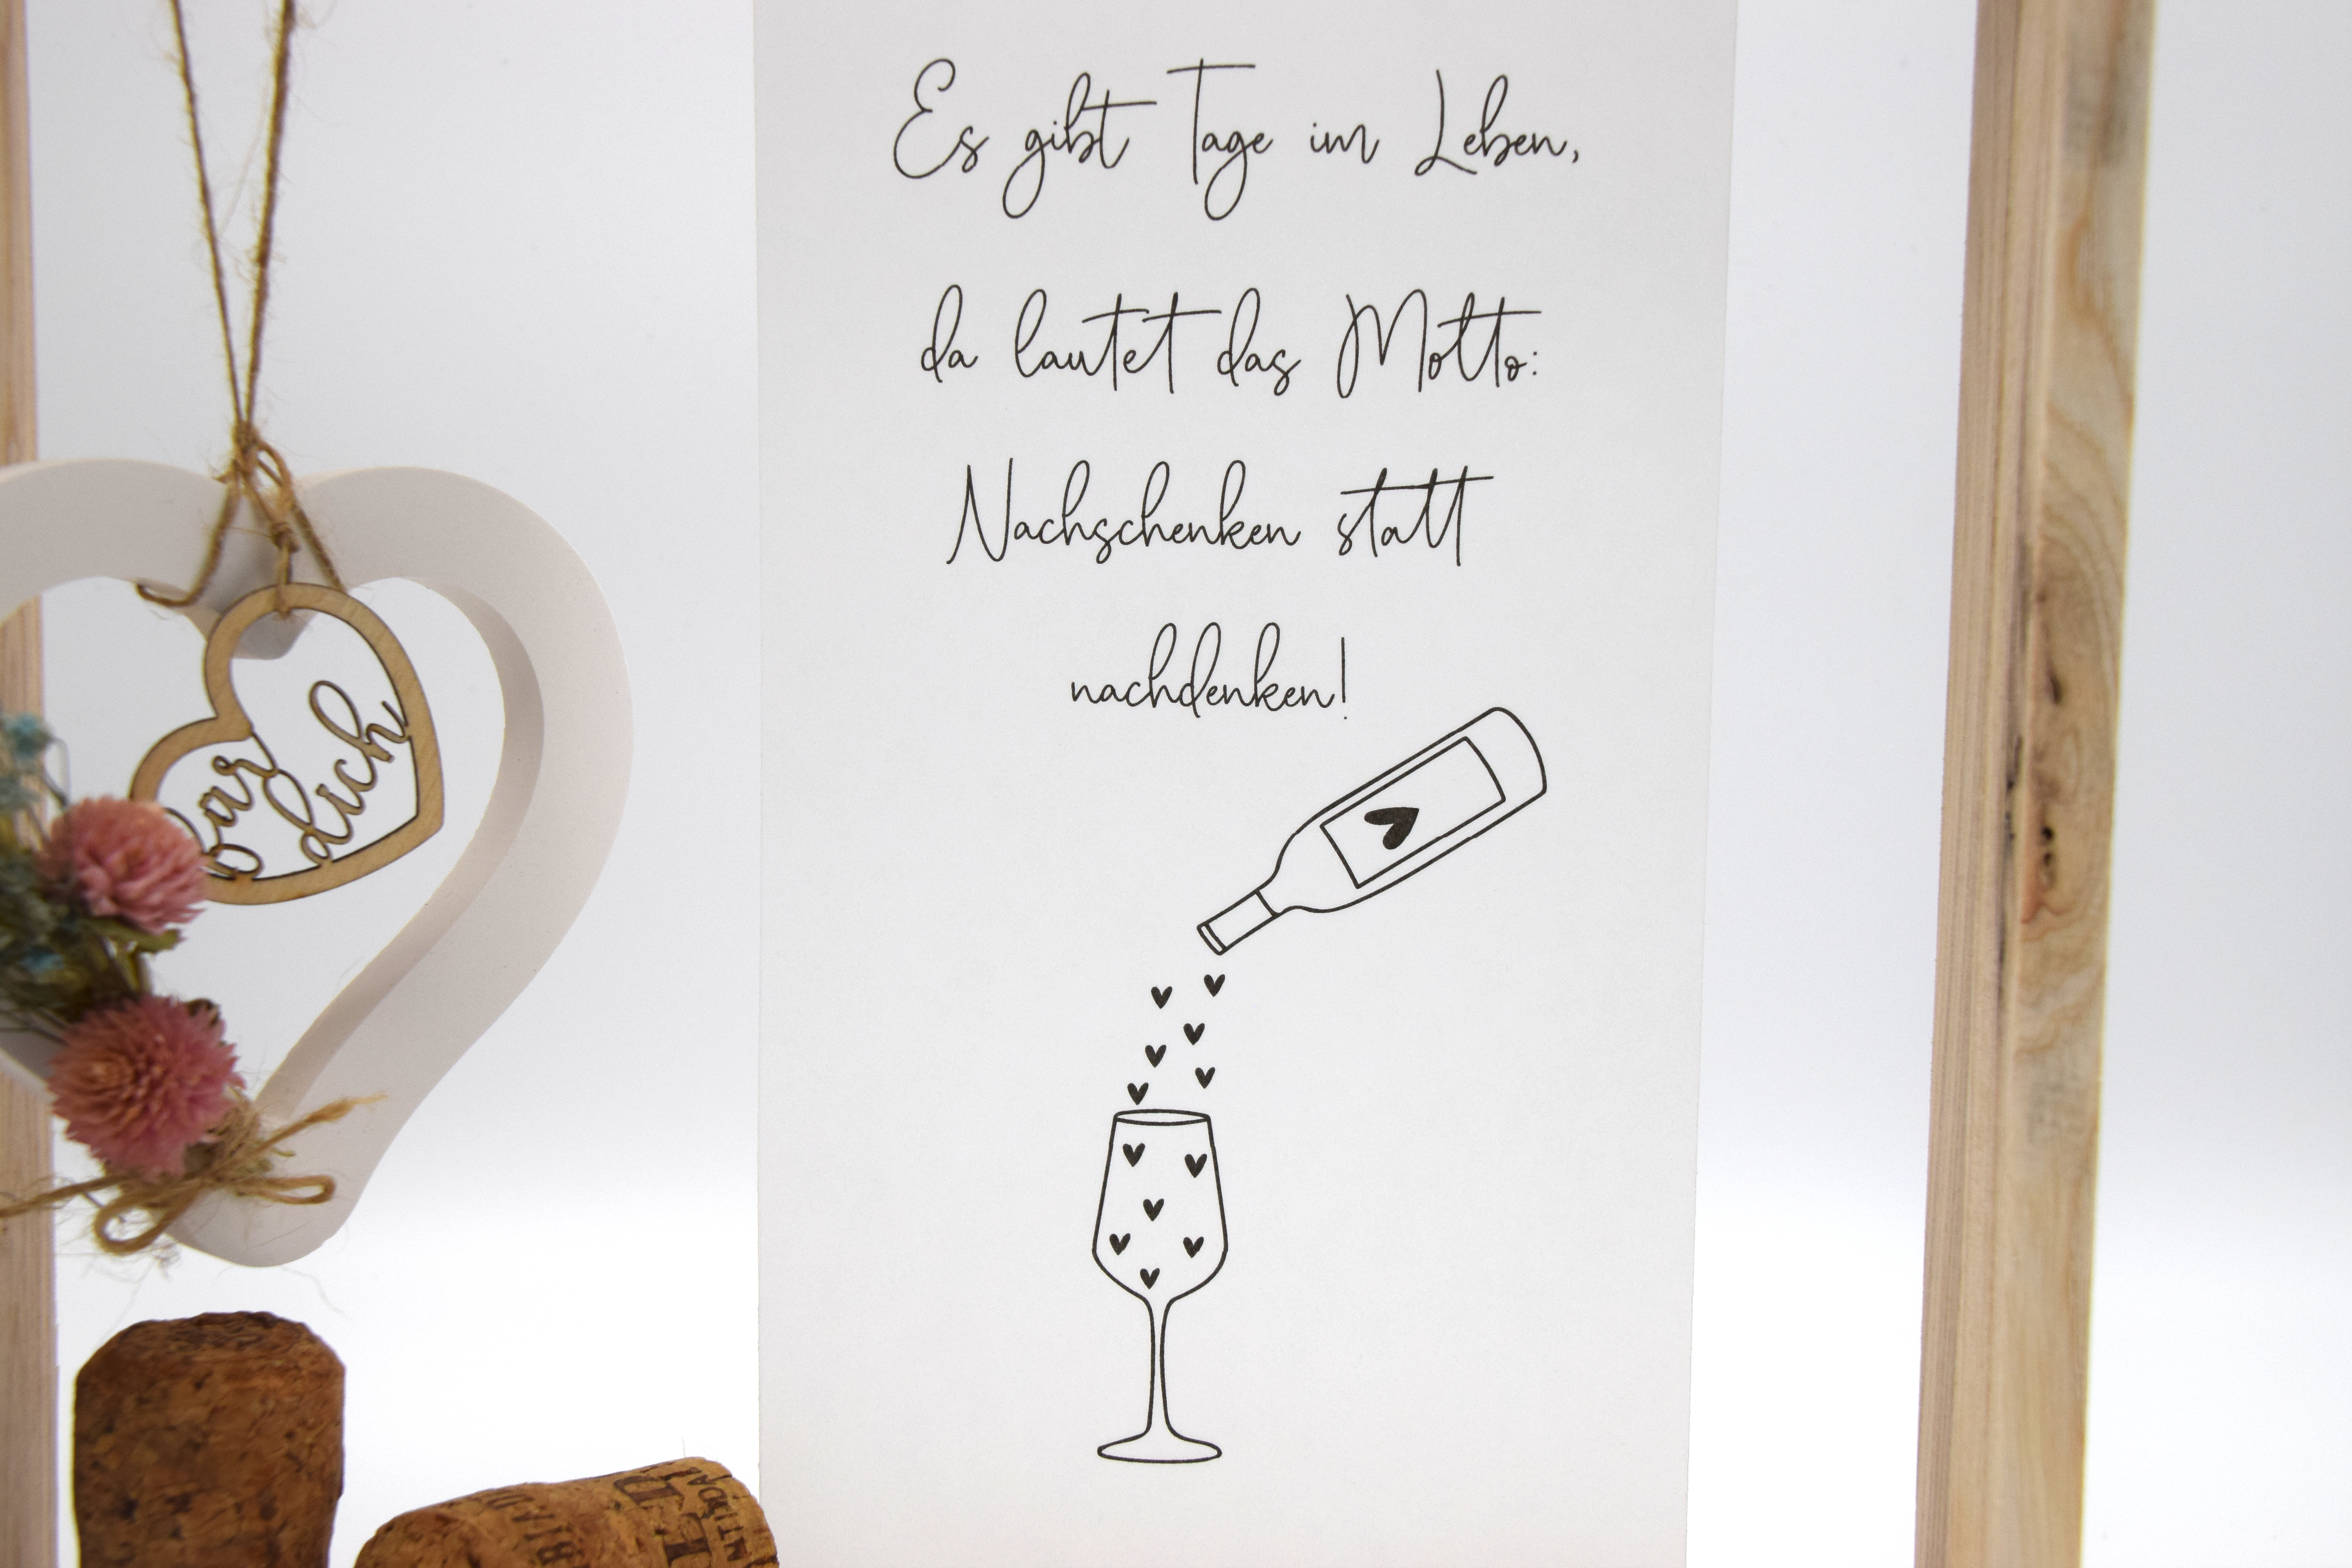 Es gibt Tage im Leben,
da lautet das Motto:
Nachschenken statt
nachdenken!
für dich